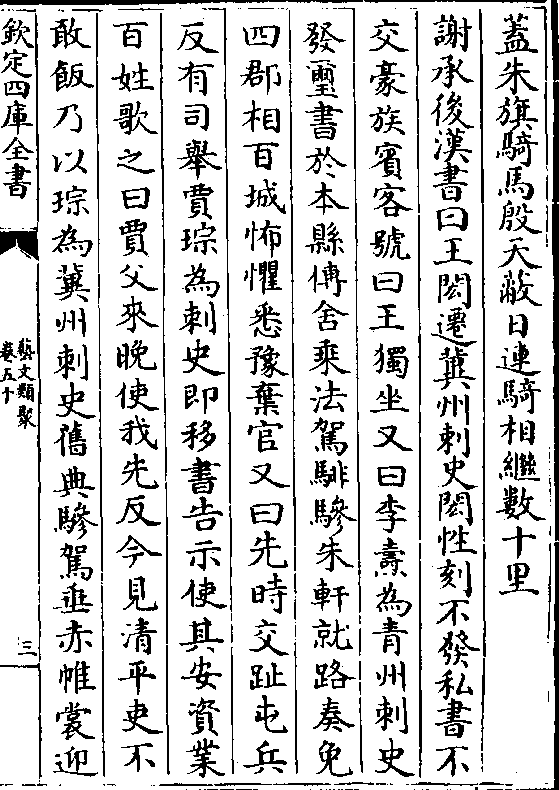 蓋朱旗騎馬殷天蔽日連騎相繼數十里
謝承後漢書曰王閎遷冀州刺史閎性刻不發私書不
交豪族賓客號曰王獨坐又曰李壽為青州刺史
發璽書於本縣傳舍乘法駕騑驂朱軒就路奏免
四郡相百城怖懼悉豫棄官又曰先時交趾屯兵
反有司舉賈琮為刺史即移書告示使其安資業
百姓歌之曰賈父來晚使我先反今見清平吏不
敢飯乃以琮為冀州刺史舊典驂駕垂赤帷裳迎
欽定四庫全書
藝文類聚
卷五十
三